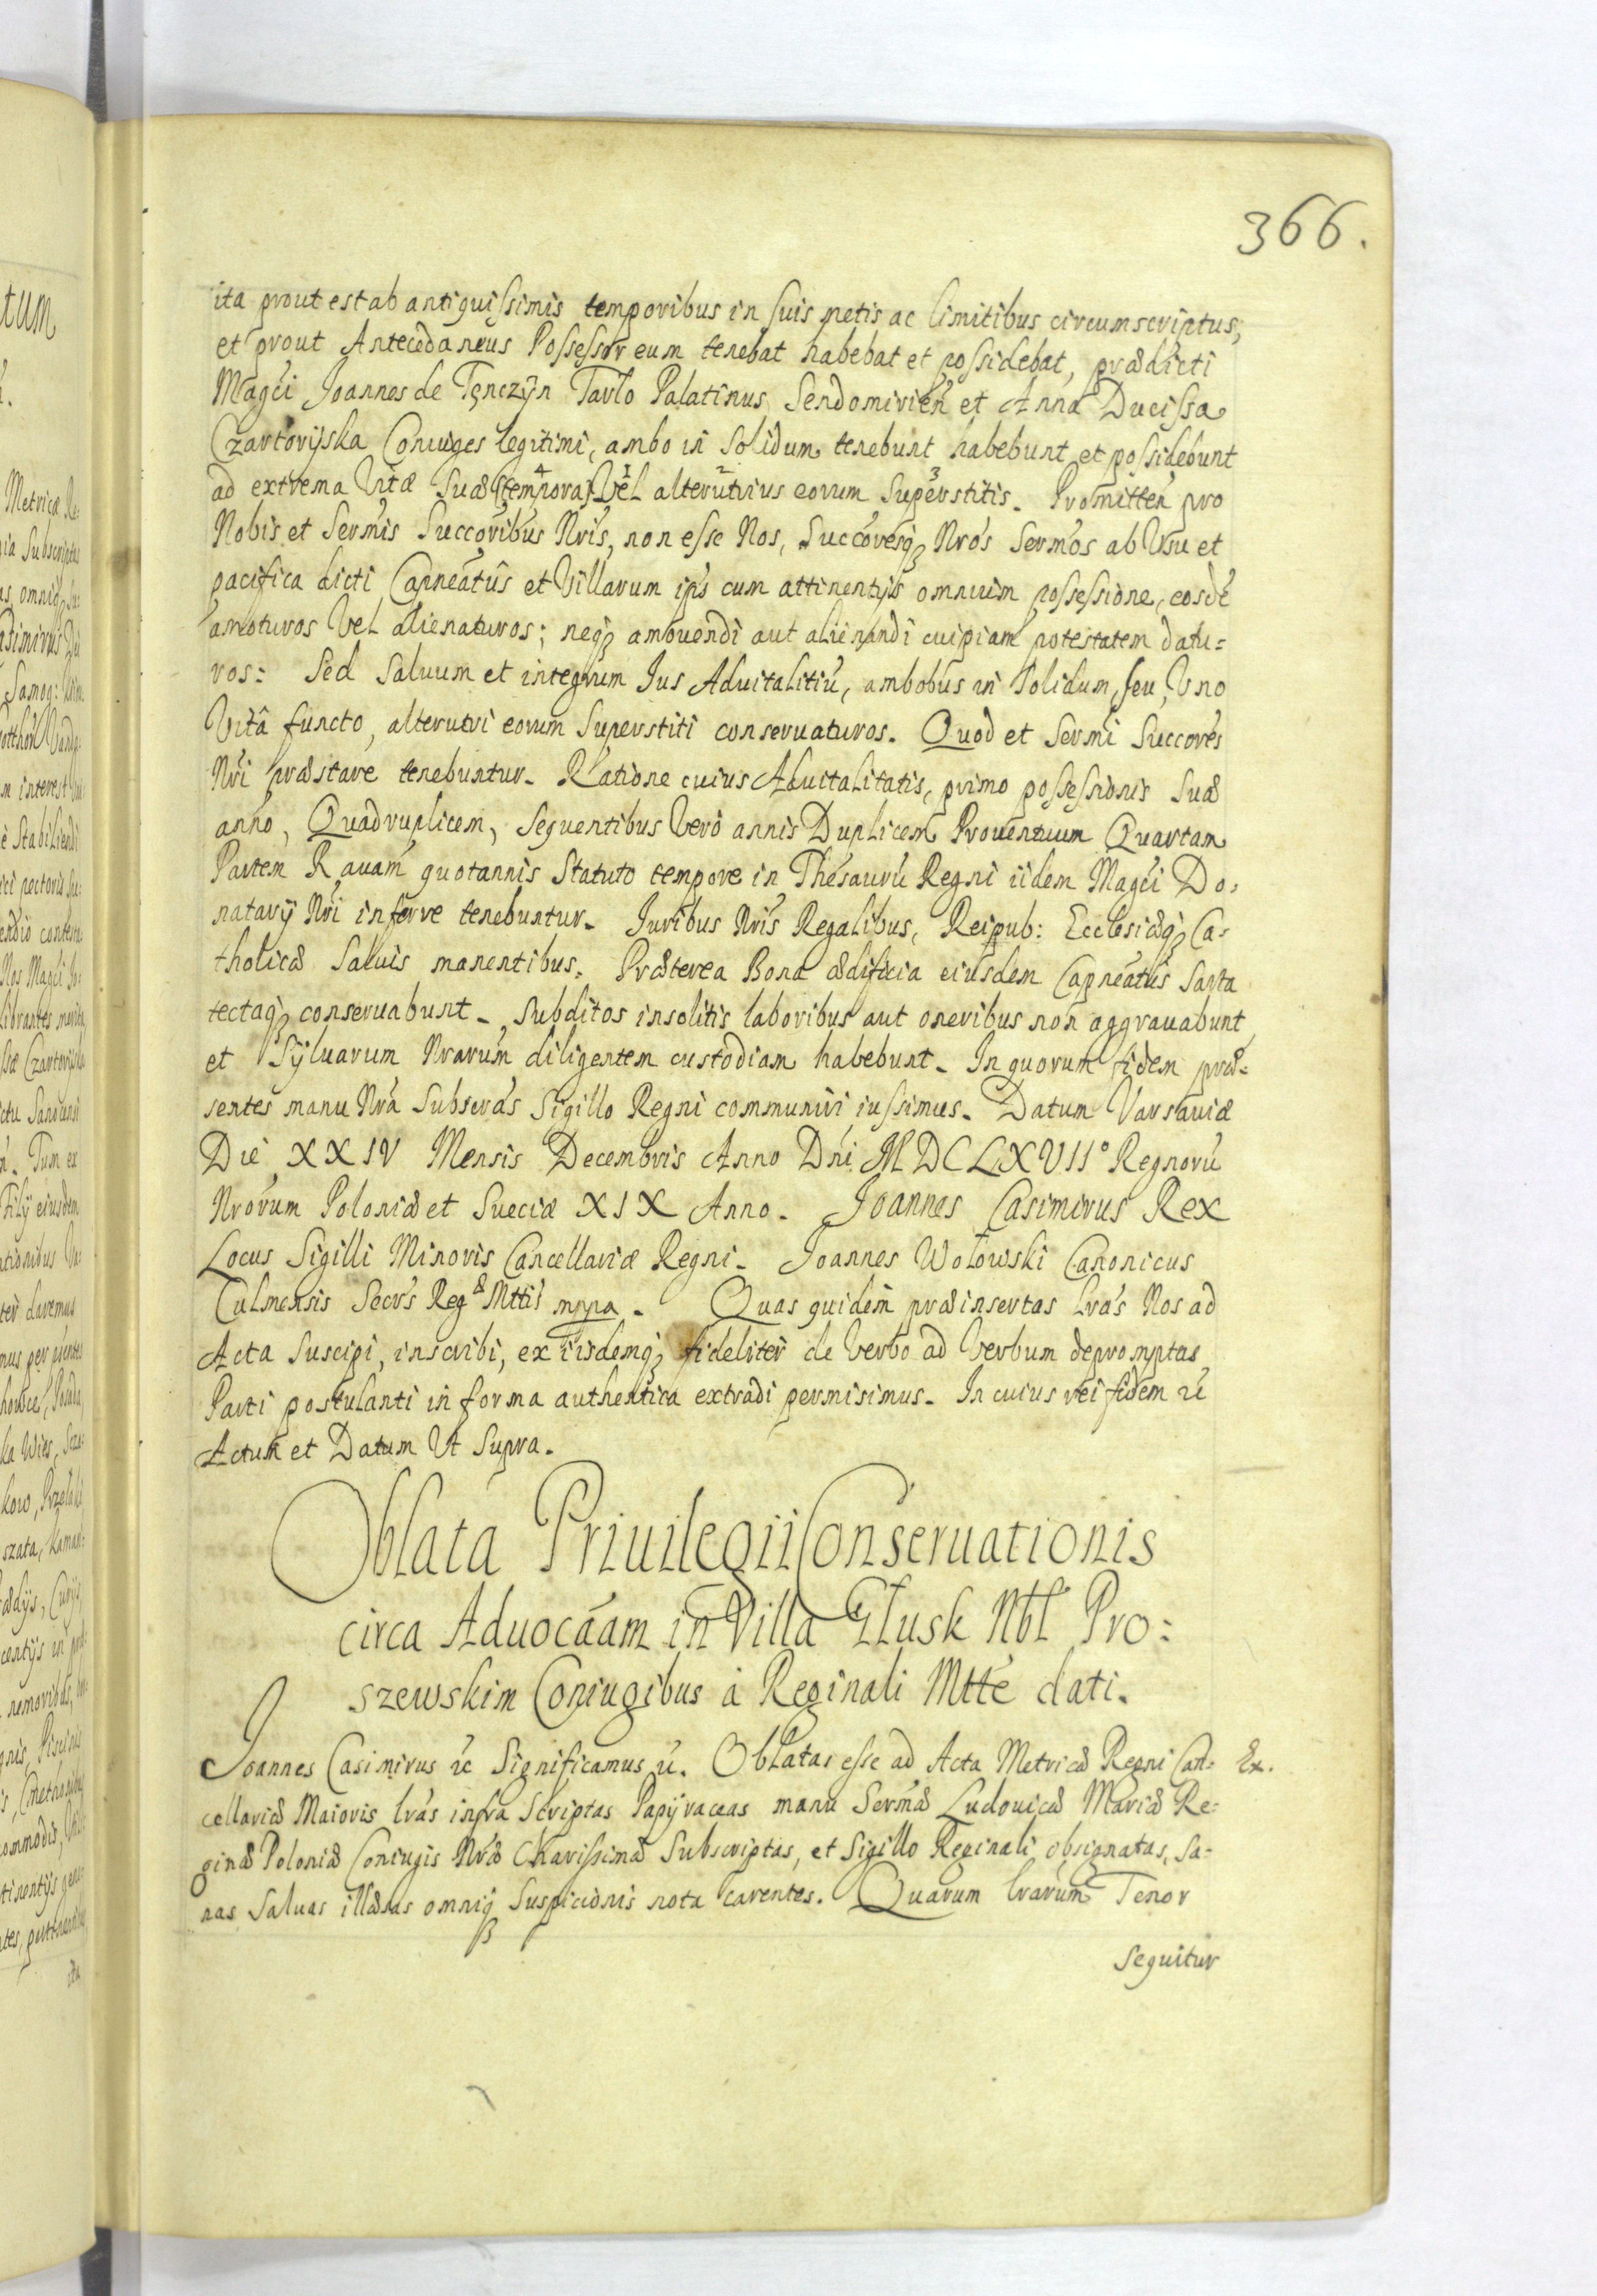 366.
ita prout est ab antiquissimis temporibus in suis metis ac limitibus circumscriptus,
et prout Antecedaneus Possessor eum tenebat habebat et possidebat, prædicti
Magci Joannes de Tęnczÿn Tarło Palatinus Sendomirien et Anna Ducissa
Czartorÿska Coniuges legitimi, ambo in solidum tenebunt habebunt et possidebunt
ad extrema Vitæ suæ (tempora) Vel alterutrius eorum superstitis. Promitten pro
Nobis et Sermis Succoribus Nris, non esse Nos, Succoresq Nros Sermos ab Vsu et
pacifica dicti Capneatûs et Villarum ips cum attinentijs omnium possessione, eosde
amoturos Vel alienaturos; neq amouendi aut alienandi cuipiam potestatem datu=
ros: Sed saluum et integrum Jus Aduitalitiu, ambobus in solidum, seu, Vno
Vitâ functo, alterutri eorum superstiti conseruaturos. Quod et Sermi Succores
Nri præstare tenebuntur. Ratione cuius Aduitalitatis, primo possessionis suæ
anno, Quadruplicem, sequentibus Verò annis Duplicem Prouentuum Quartam
Partem Rauam quotannis Statuto tempore in Thesauru Regni iidem Magci Do=
natarij Nri inferre tenebuntur. Juribus Nris Regalibus, Reipub: Ecclesiæq Ca=
tholicæ saluis manentibus. Præterea Bona ædificia eiusdem Capneatus sarta
tectaq conseruabunt. Subditos insolitis laboribus aut oneribus non aggrauabunt
et Syluarum Nrarum diligentem custodiam habebunt. In quorum fidem præ=
sentes manu Nra Subscras Sigillo Regni communiri iussimus. Datum Varsauiæ
Die XXIV Mensis Decembris Anno Dni MDCLXVII° Regnoru
Nrorum Poloniæ et Sueciæ XIX Anno. Joannes Casimirus Rex
Locus Sigilli Minoris Cancellariæ Regni. Joannes Wołowski Canonicus
Culmensis Secrs Regæ Mttis mppa. Quas quidem præinsertas lras Nos ad
Acta suscipi, inscribi, ex iisdemq fideliter de Verbo ad Verbum depromptas
Parti postulanti in forma authentica extradi permisimus. In cuius rei fidem &c
Actum et Datum Vt supra.
Oblata Priuilegii Conseruationis
circa Aduocaam in Villa Głusk Nbl Pro:
szewskim Coniugibus à Reginali Mtte dati.
Joannes Casimirus &c Significamus &c. Oblatas esse ad Acta Metricæ Regni Can= Ex.
cellariæ Maioris lras infra scriptas Papÿraceas manu Sermæ Ludouicæ Mariæ Re=
ginæ Poloniæ Coniugis Nræ Charissimæ Subscriptas, et Sigillo Reginali obsignatas, sa=
nas saluas illæsas omniq suspicionis nota carentes. Quarum lrarum Tenor
sequitur